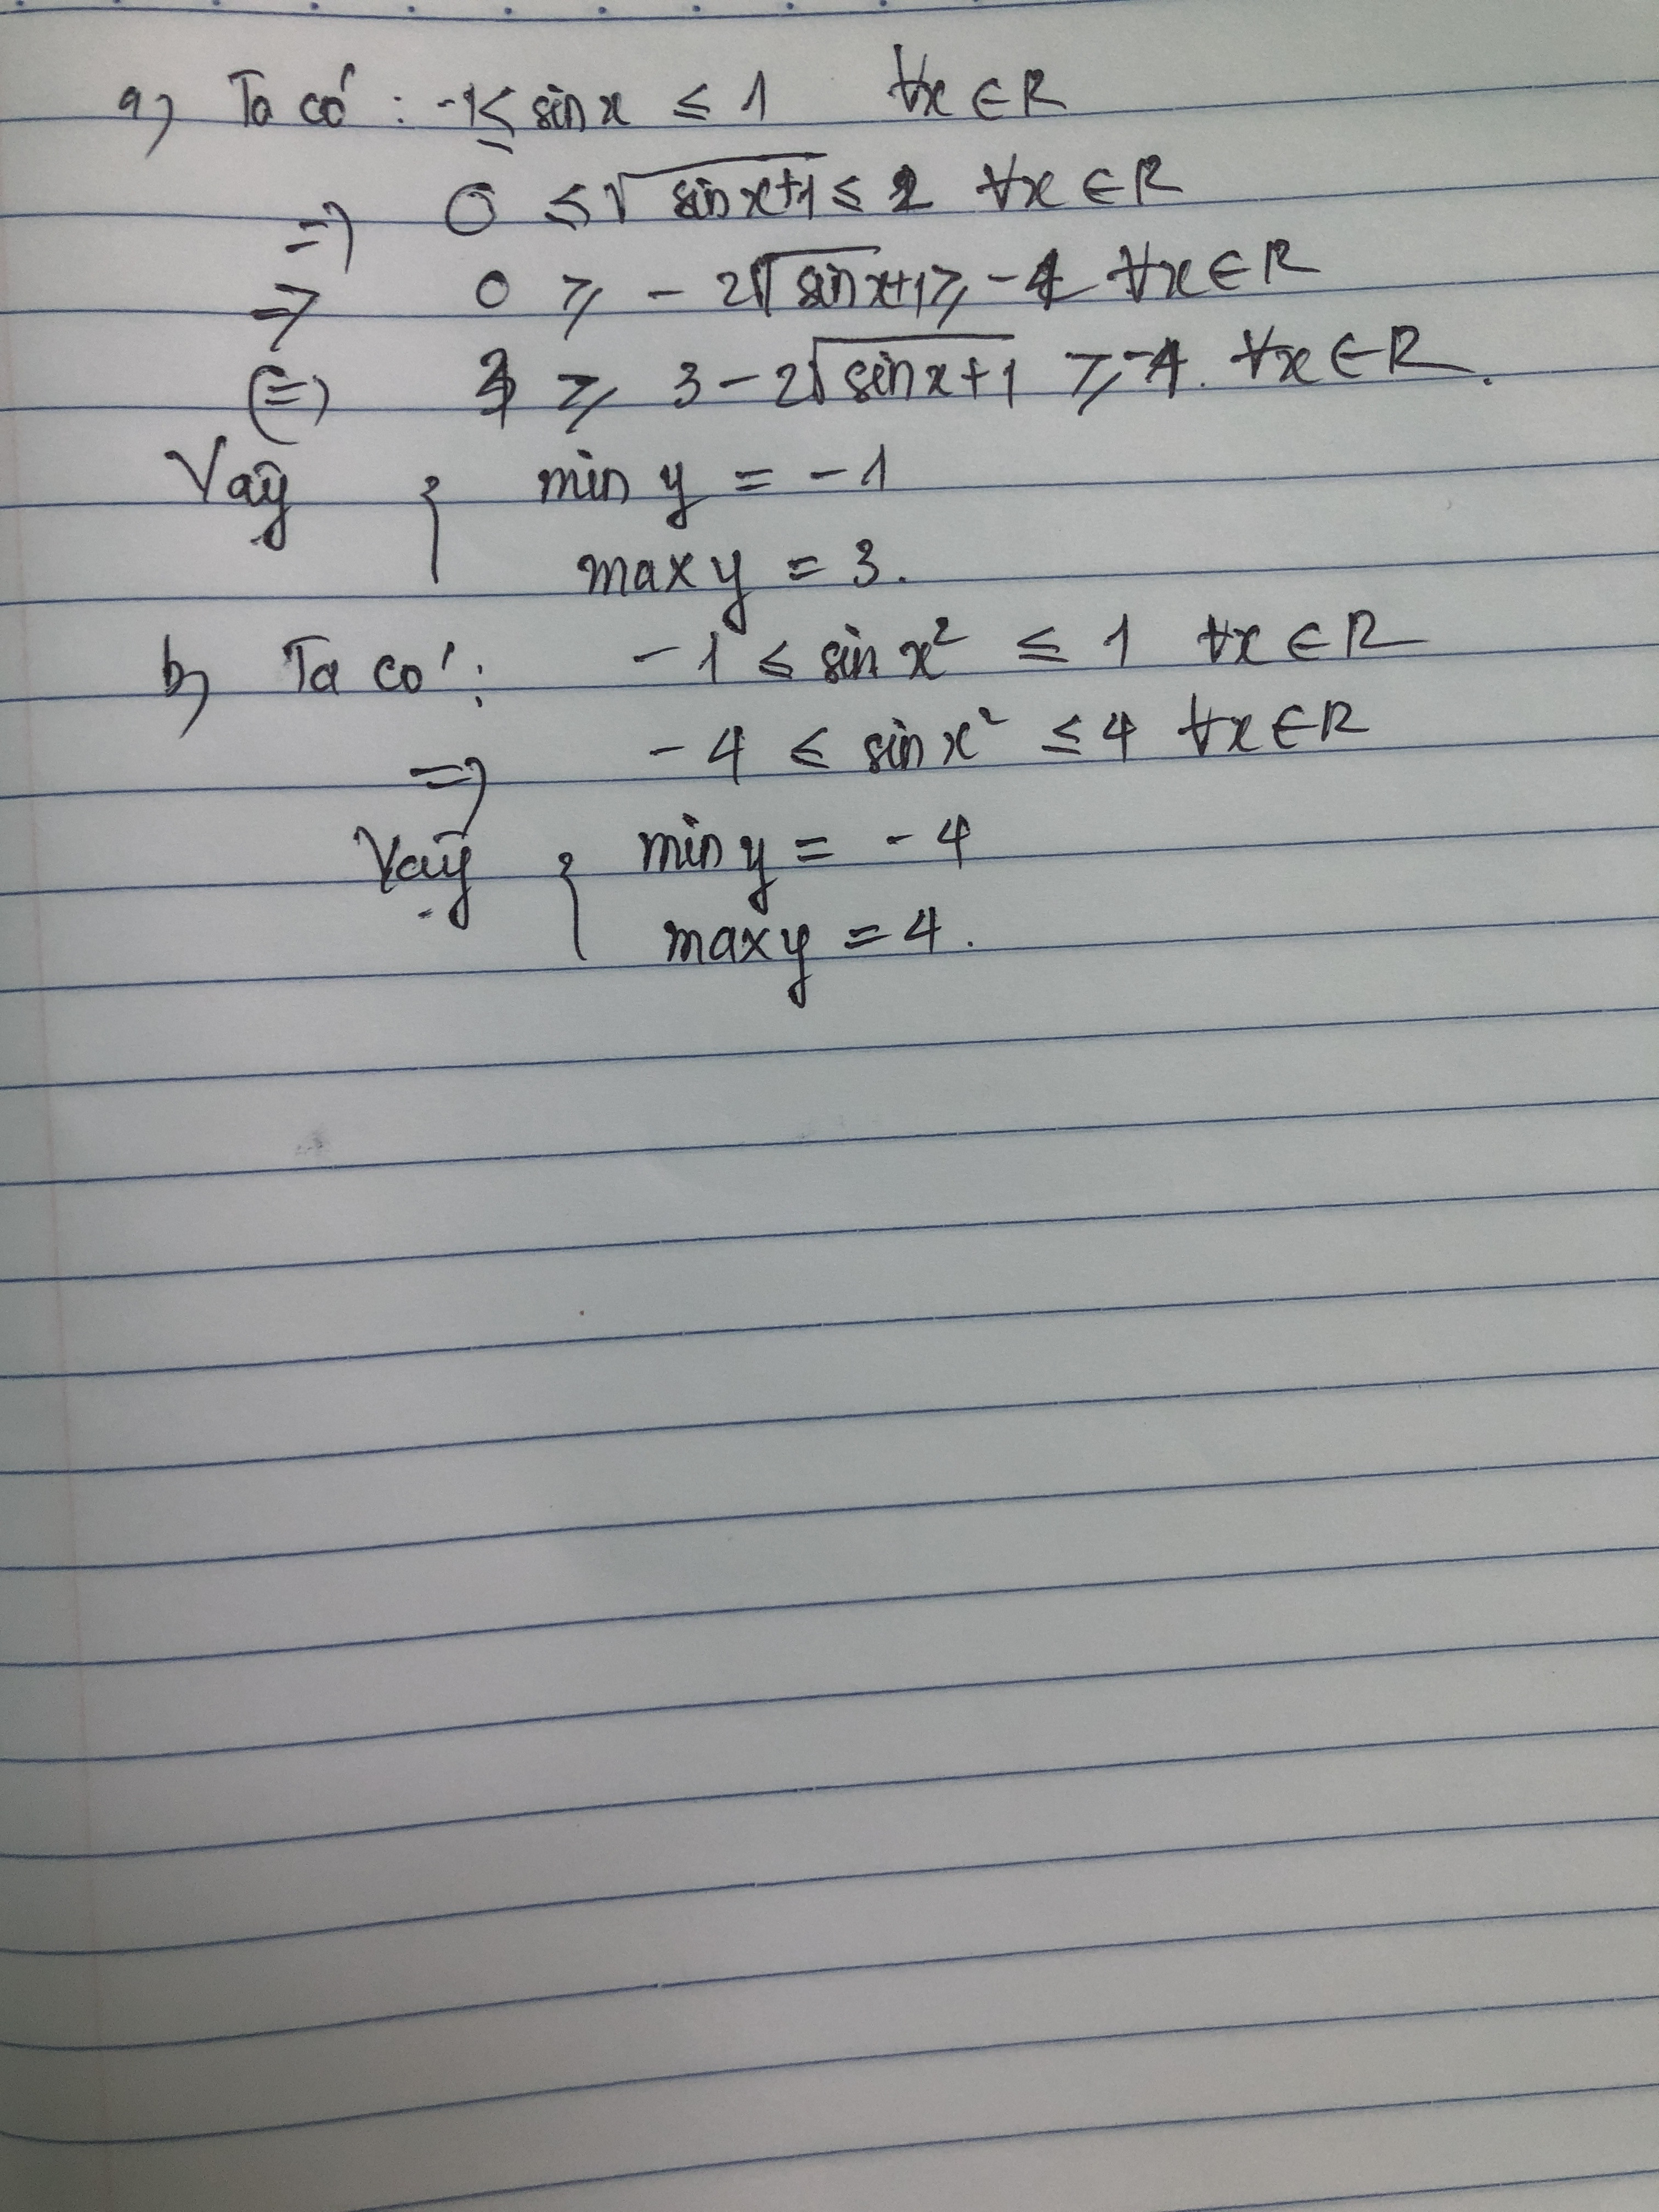 a) Ta có: -1 ≤ sin x ≤ 1 ∀x ∈ R
=> 0 ≤ √sin x+1 ≤ 2 ∀x ∈ R
=> 0 ≥ - 2√sin x+1 ≥ -4 ∀x ∈ R
(=) 3 ≥ 3 - 2√sin x+1 ≥ -1. ∀x ∈ R.
Vậy { min y = -1
max y = 3.
b) Ta có: -1 ≤ sin x² ≤ 1 ∀x ∈ R
=> -4 ≤ sin x² ≤ 4 ∀x ∈ R
Vậy { min y = -4
max y = 4.